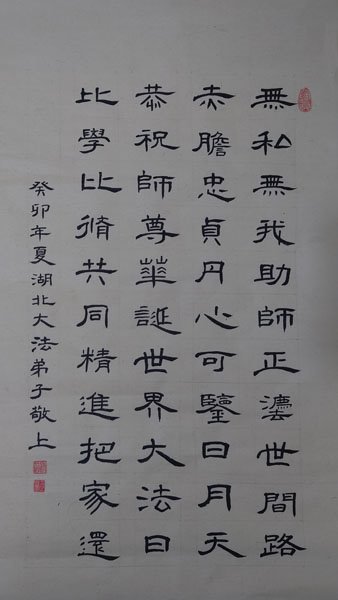 無私無我助師正灋世間路
赤膽忠貞丹心可鑒日月天
恭祝師尊華誕世界大法日
比學比脩共同精進把家還
癸卯年夏湖北大法弟子敬上